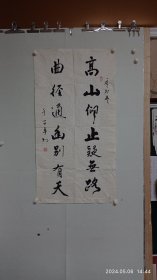 高山仰止疑無路
曲径通幽别有天
2024.05.06 14:44